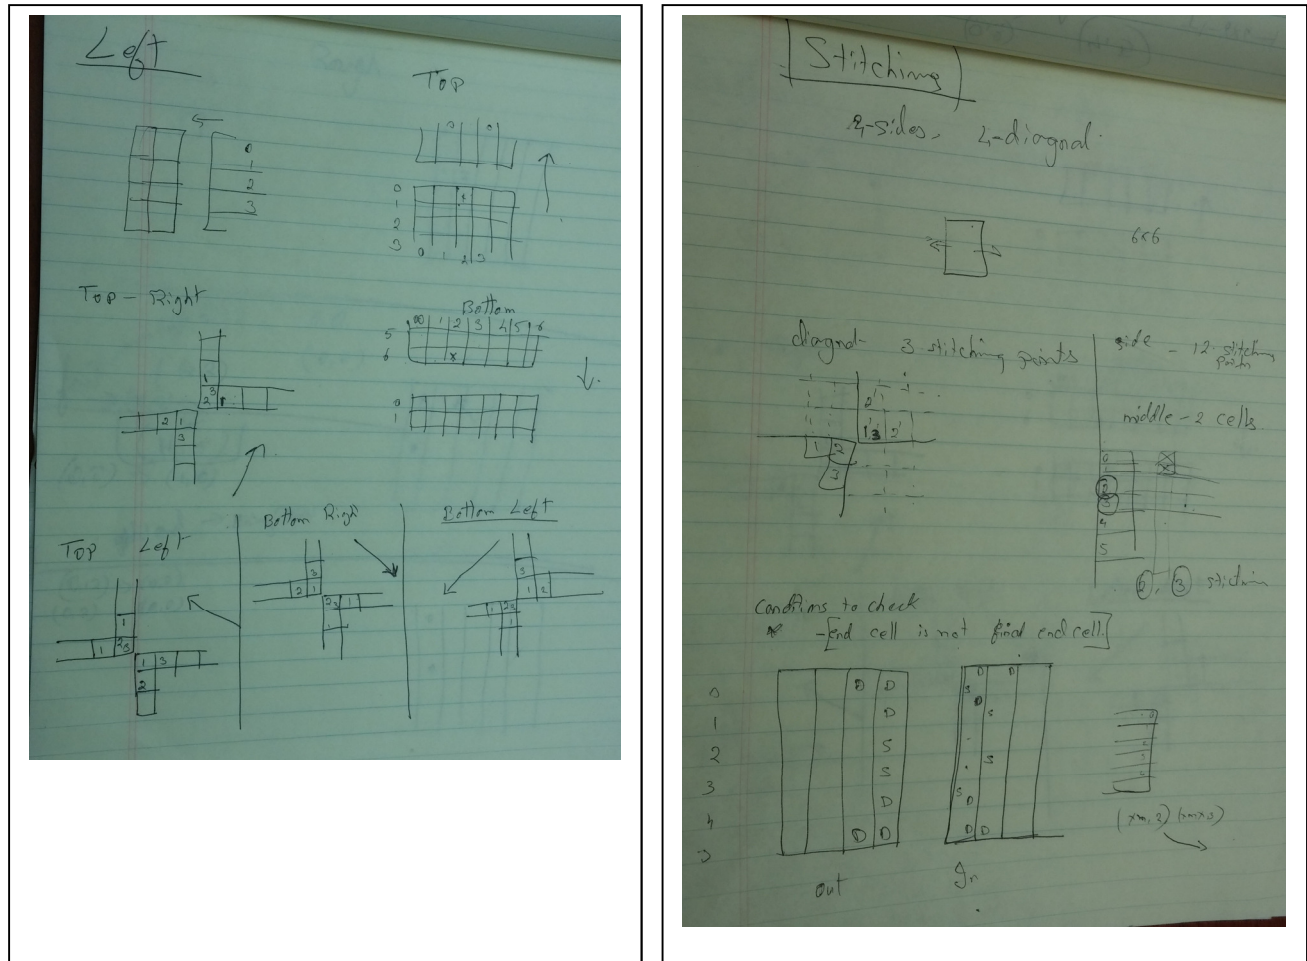 Left
Top
0
1
2
3
0
1
2
3
0 1 2 3
Top - Right
1
2 3 1
2 1
3
Bottom
00 1 2 3 4 5 6
5
6 x
0
1
Top Left
1
1 2 3
1 3
2
Bottom Right
3
2 1
2 3 1
Bottom Left
3
1 2
1 2 3
1
Stitching
4-sides, 4-diagnal
6x6
diagnal 3 stitching points
2'
1' 3' 2'
1 2
3
side - 12 stitching points
middle - 2 cells
0
1
2
3
4
5
2, 3
Conditions to check
- [end cell is not final end cell.]
0
1
2
3
4
5
D D
D
S
S
D
D D
out
D D
S
D
S
S
S
D
D D
In